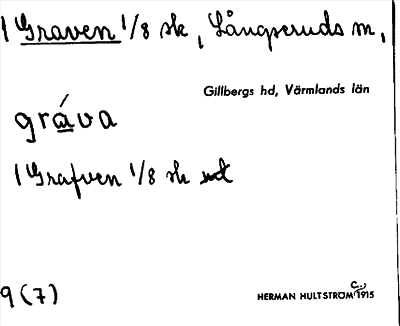 1 Graven 1/8 sk, Långseruds sn,
Gillbergs hd, Värmlands län
gráva
1 Grafven 1/8 sk
9 (7)
HERMAN HULTSTRÖM C., 1915